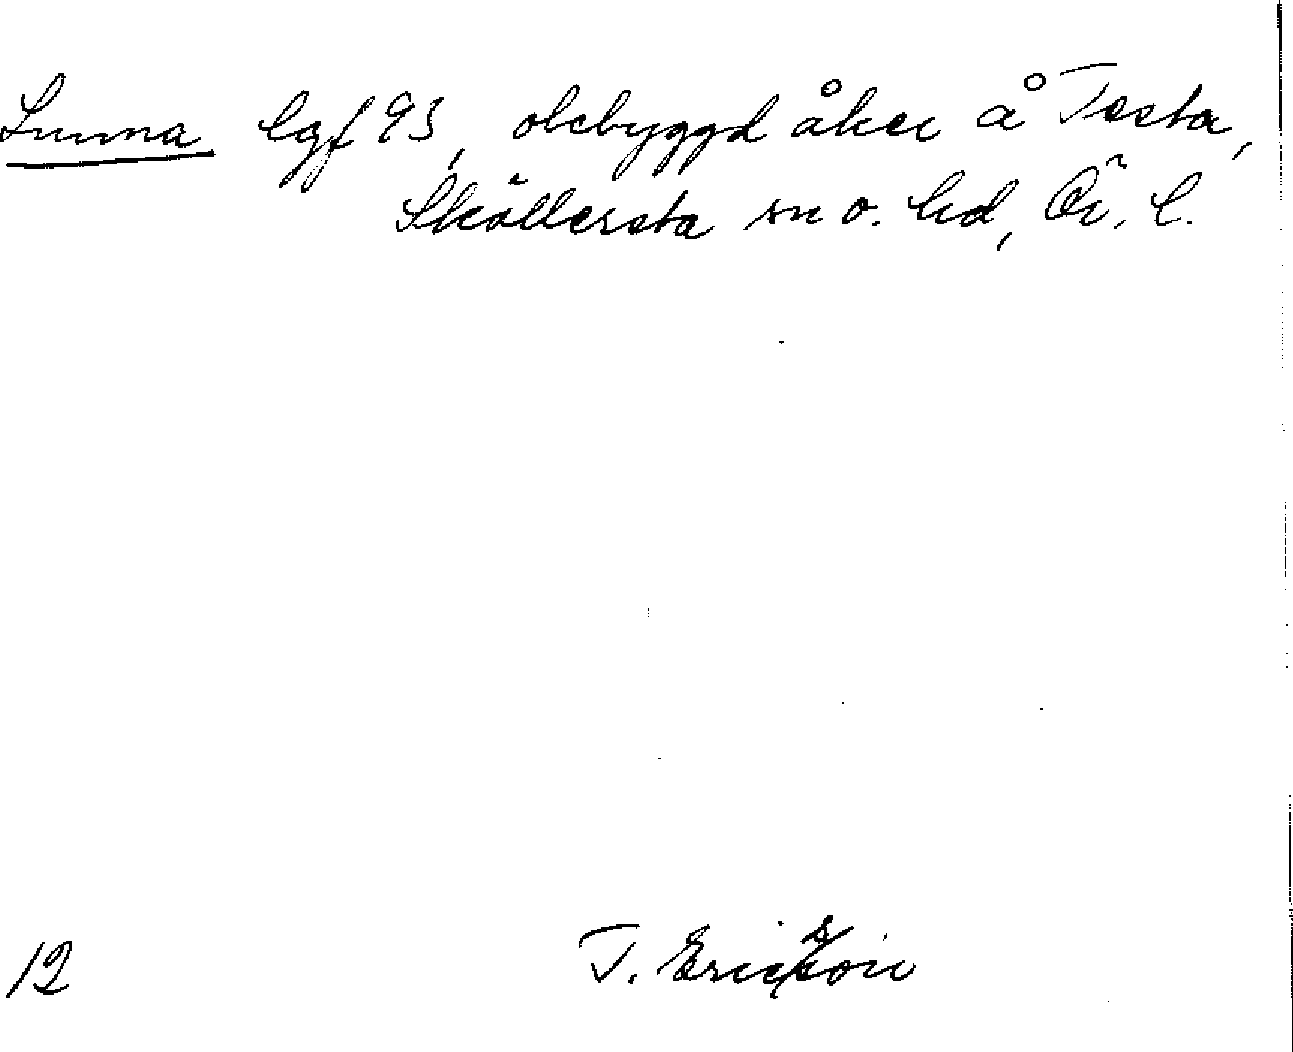 Lunna lgf 93, obebyggd åker å Testa,
Sköllersta sn o. hd, Ör. l.
12 T. Ericsson